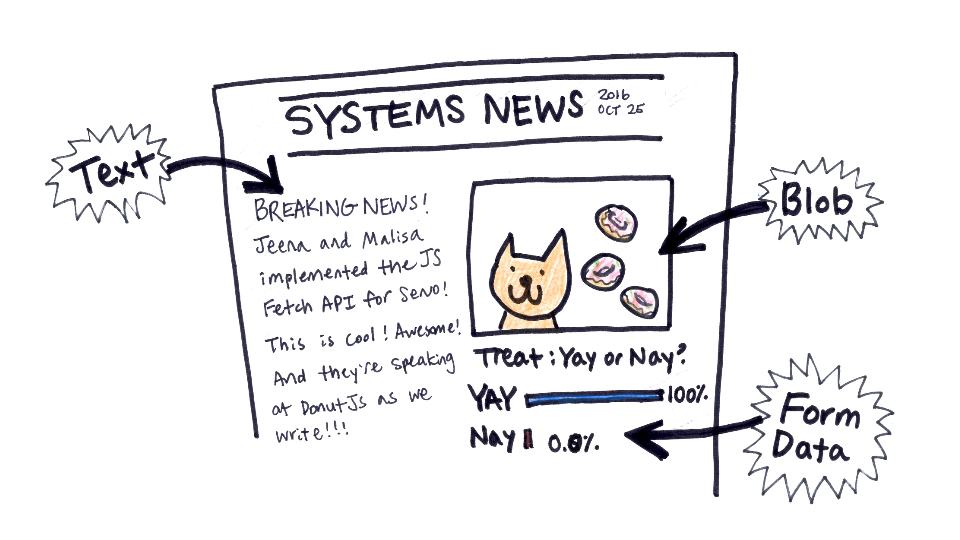 SYSTEMS NEWS
2016
OCT 25
Text
BREAKING NEWS!
Jeena and Malisa
implemented the JS
Fetch API for Servo!
This is cool! Awesome!
And they're speaking
at DonutJs as we
write!!!
Blob
Treat: Yay or Nay?
YAY 100%
Nay 0.0%
Form
Data